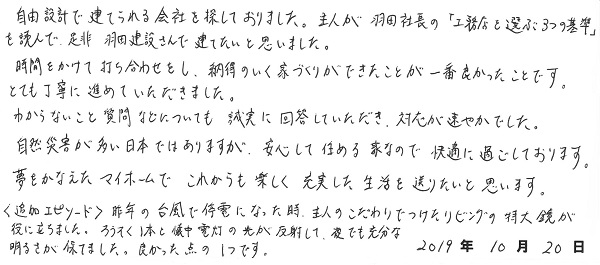 自由設計で建てられる会社を探しておりました。主人が羽田社長の「工務店を選ぶ3つの基準」
を読んで、是非羽田建設さんで建てたいと思いました。
時間をかけて打ち合わせをし、納得のいく家づくりができたことが一番良かったことです。
とても丁寧に進めていただきました。
わからないこと質問などについても誠実に回答していただき、対応が速やかでした。
自然災害が多い日本ではありますが、安心して住める家なので快適に過ごしております。
夢をかなえたマイホームでこれからも楽しく充実した生活を送りたいと思います。
<追加エピソード>昨年の台風で停電になった時、主人のこだわりでつけたリビングの特大鏡が
役に立ちました。ろうそく1本と懐中電灯の光が反射して、夜でも充分な
明るさが保てました。良かった点の1つです。
2019年10月20日